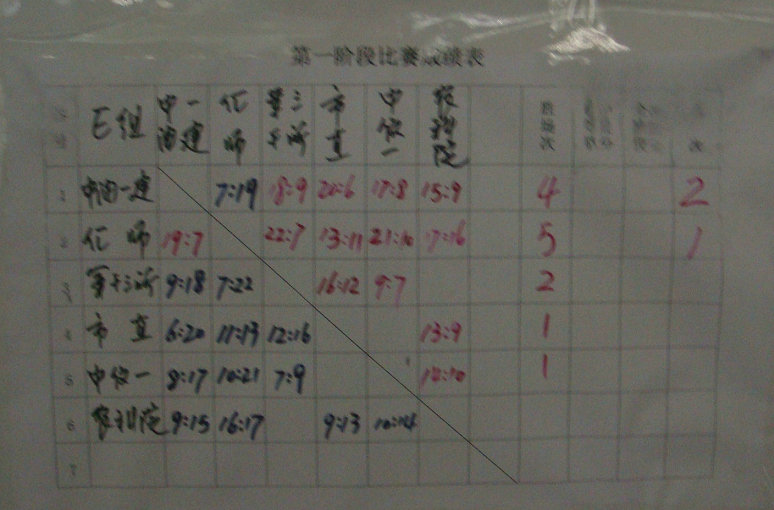 第一阶段比赛成绩表
E组 中油一建 化师 第三干所 市直 中行一 农科院 胜场次 次
1 中油一建 7:19 18:9 20:6 17:8 15:9 4 2
2 化师 19:7 22:7 13:11 21:10 17:16 5 1
3 第干三所 9:18 7:22 16:12 9:7 2
4 市直 6:20 11:13 12:16 13:9 1
5 8:17 10:21 7:9 14:10 1
6 农科院 9:15 16:17 9:13 10:14
7